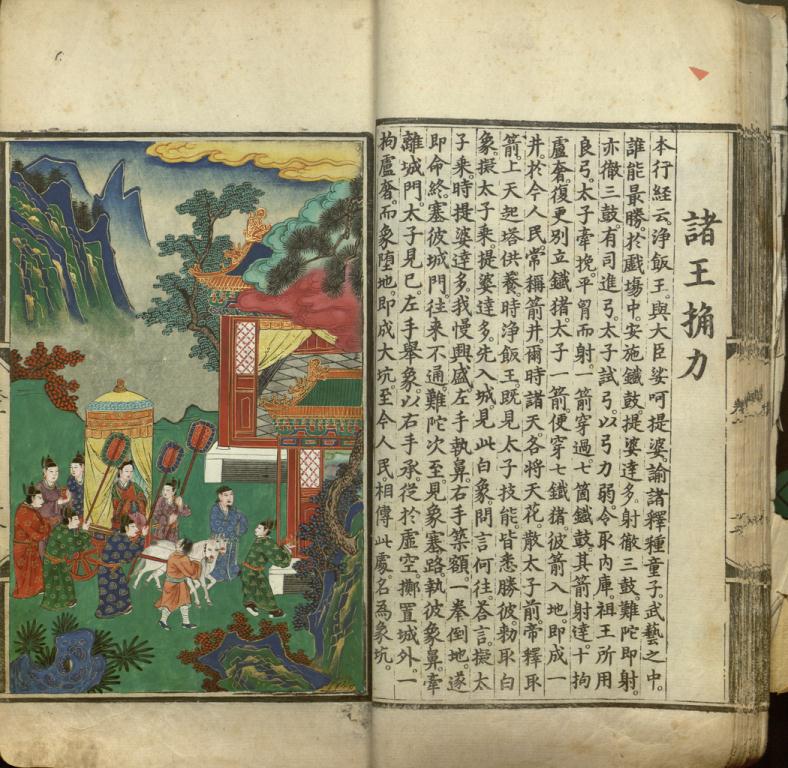 諸王捔力
本行經云。淨飯王。與大臣娑呵提婆。諭諸釋種童子。武藝之中。
誰能最勝。於戲場中。安施鐵鼓。提婆達多。射徹三鼓。難陀即射。
亦徹三鼓。有司進弓。太子試弓。以弓力弱。令取內庫。祖王所用
良弓。太子牽挽。平胷而射。一箭穿過七箇鐵鼓。其箭射達。十拘
盧奢。復更別立鐵猪。太子一箭。便穿七鐵猪。彼箭入地。即成一
井。於今人民。常稱箭井。爾時諸天。各將天花。散太子前。帝釋取
箭。上天起塔供養。時淨飯王。既見太子技能。皆悉勝彼。勑取白
象。擬太子乘。提婆達多。先入城。見此白象。問言何往。荅言擬太
子乘。時提婆達多。我慢興盛。左手執鼻。右手築額。一拳倒地。遂
即命終。塞彼城門。往來不通。難陀次至。見象塞路。執彼象鼻。牽
離城門。太子見已。左手舉象。以右手承。從於虛空。擲置城外。一
拘盧奢。而象墮地。即成大坑。至今人民。相傳此處名為象坑。